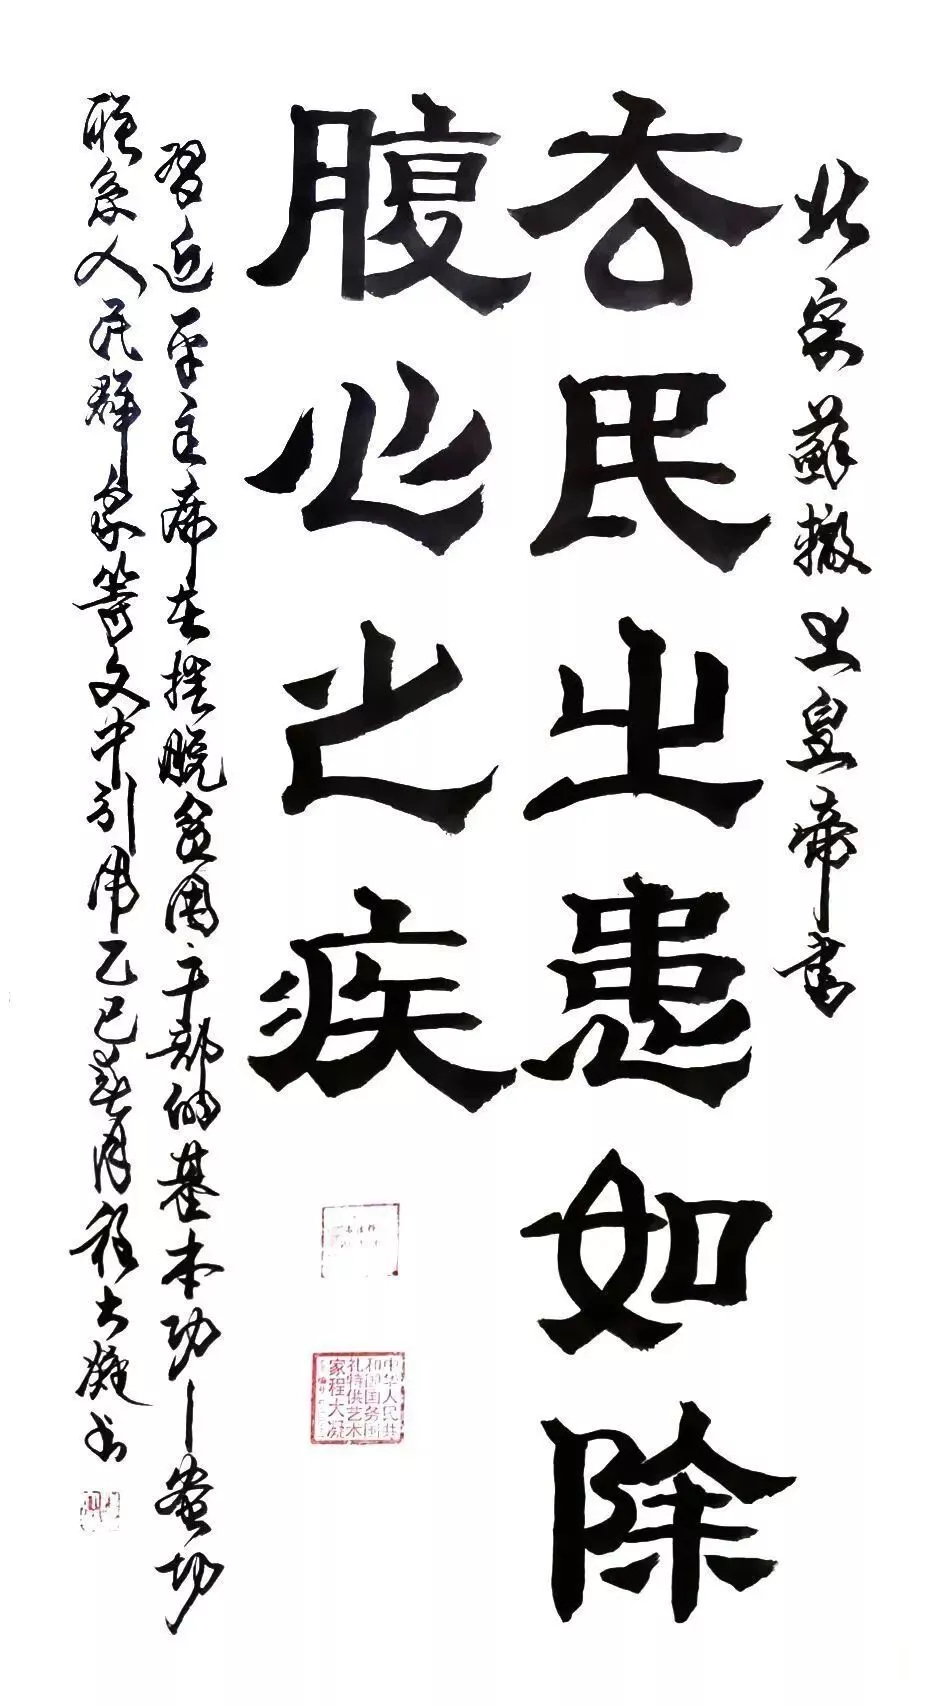 北宋蘇轍上皇帝書
去民之患如除
腹心之疾
習近平主席在摆脱贫困干部的基本功—密切
联系人民群众等文中引用乙巳春月程大凝书
中华人民共
和国国务院
礼特供艺术
家程大凝